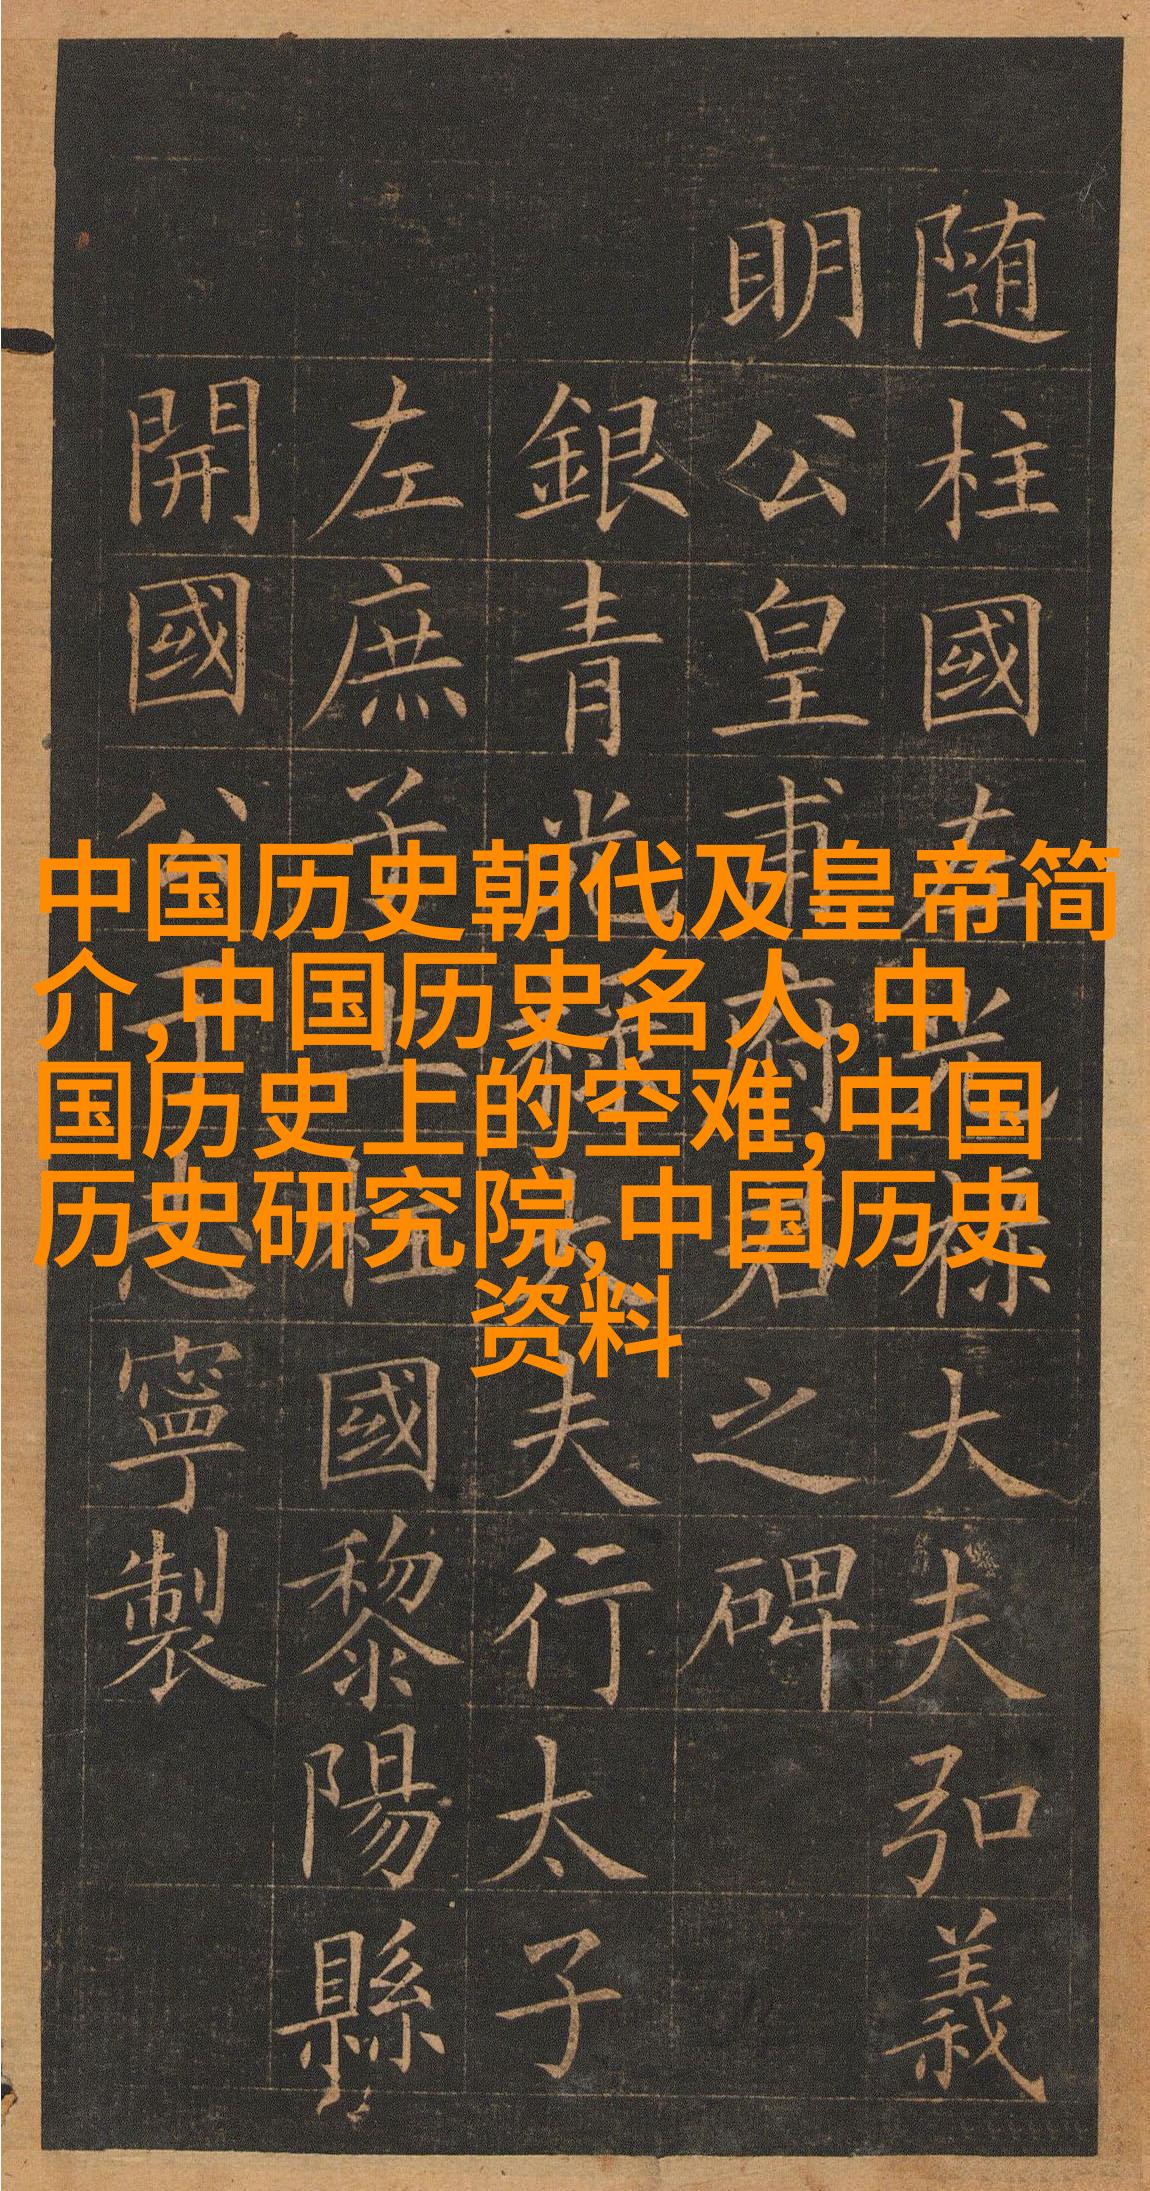 中国历史朝代及皇帝简
介,中国历史名人,中
国历史上的空难,中国
历史研究院,中国历史
资料
随柱國左光禄大夫弘義
明公皇甫府君之碑
銀青光禄大夫行太子
左庶子上柱國黎陽縣
開國公于志寧製